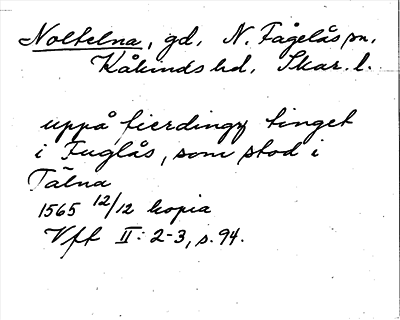 Noltelna, gd, N. Fågelås sn.
Kåkinds hd, Skar. l.
uppå fierdingz tinget
i Fuglås, som stod i
Tälna
1565 12/12 kopia
Vft II: 2-3, s. 94.